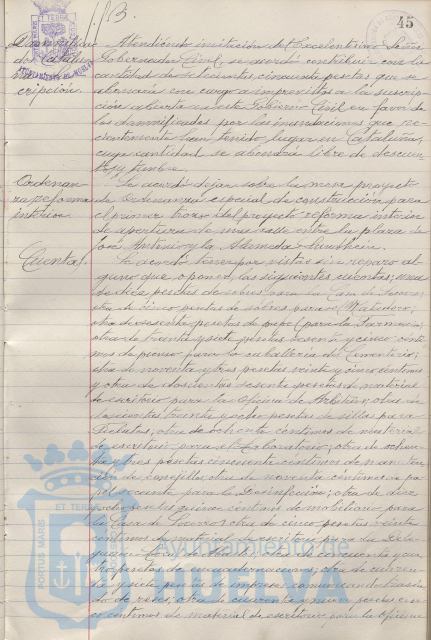 45
Damnificados Cataluña suscripción.
Atendiendo invitación del Excelentísimo Señor
Gobernador Civil, se acordó contribuir con la
cantidad de setecientas cincuenta pesetas que se
abonarán con cargo a imprevistos a la suscrip-
ción abierta en este Gobierno Civil en favor de
los damnificados por las inundaciones que re-
cientemente han tenido lugar en Cataluña,
cuya cantidad se abonará libre de descuen-
tos y timbre.
Ordenan-
za reforma
interior
Se acordó dejar sobre la mesa proyecto
de Ordenanza especial de construcción para
el primer trozo del proyecto reforma interior
de apertura de una calle entre la plaza de
José Antonio y la Alameda Sundheim.
Cuentas.
Se acordó tener por vistas sin reparo al-
guno que oponer, las siguientes cuentas: una
de diez pesetas de sobres para la Casa de Socorro;
otra de cinco pesetas de sobres para el Matadero;
otra de sesenta pesetas de papel para la Farmacia;
otra de treinta y siete pesetas sesenta y cinco cénti-
mos de pienso para la caballería del Cementerio;
otra de noventa y tres pesetas veinte y cinco céntimos
y otra de doscientas sesenta pesetas de material
de escritorio para la Oficina de Arbitrios; otra de
treinta y ocho pesetas de sillas para
otra de ochenta céntimos de material
de escritorio para el Laboratorio; otra de ochen-
ta y tres pesetas cincuenta céntimos de manuten-
ción de conejillos; otra de noventa céntimos de pa-
pel secante para la Desinfección; otra de diez
y ocho pesetas quince céntimos de mobiliario para
la Casa de Socorro; otra de cinco pesetas veinte
céntimos de material de escritorio para la
otra de cincuenta y cua-
tro pesetas de encuadernaciones; otra de cuaren-
ta y siete pesetas de impresos comunicando trasla-
do de reses; otra de cuarenta y nueve pesetas cin-
co céntimos de material de escritorio para la Oficina
PORTUS MARIS ET TERRAE
Ayuntamiento de
HUELVA